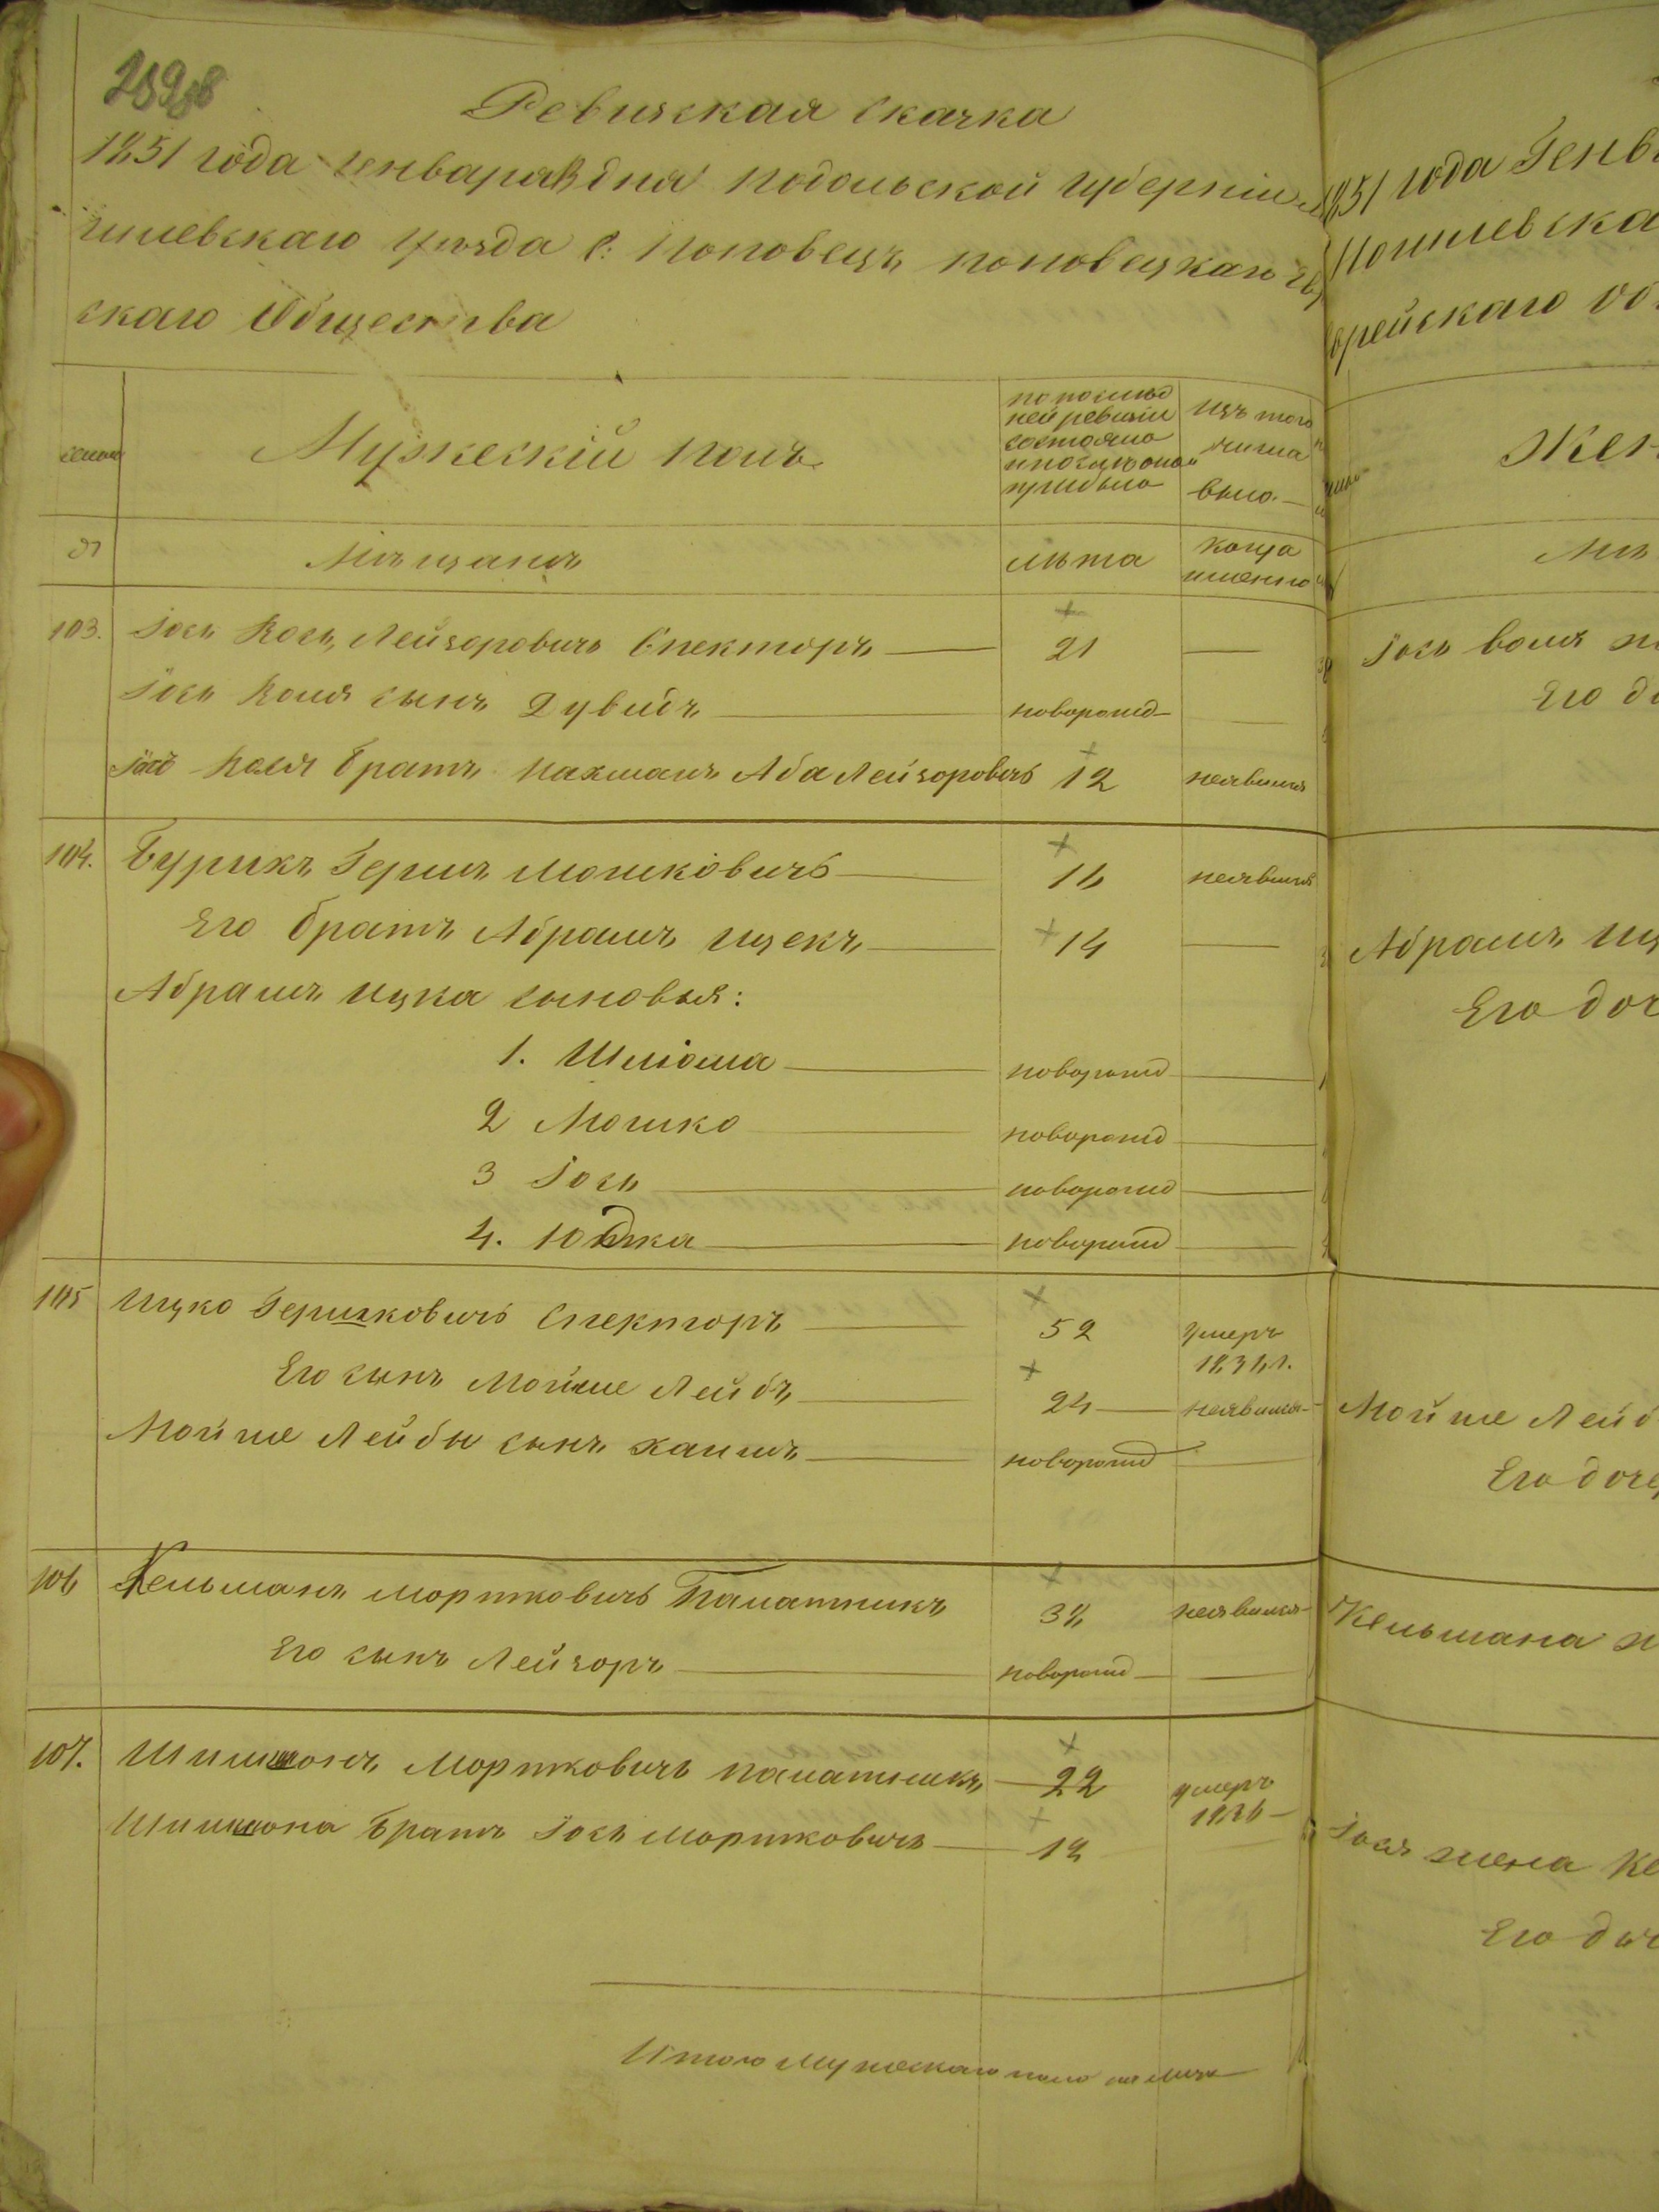 Ревизская скаска
1851 года Генваря дня Подольской Губернiи
гилевскаго уѣзда с: Поповецъ Поповецкаго
скаго Общества
Мужескiй полъ
по послѣд
ней ревизiи
состояло
и послѣ оной
прибыло
изъ того
числа
выло.
Мѣщанъ
лѣта
когда
именно
103. Iось Волъ Лейзоровичъ Спекторъ 21
Iось Воля сынъ Дувидъ новорожд
Iось Воля братъ Нахманъ Аба Лейзоровичъ 12 неявился
104. Бурикъ Гершъ Мошковичъ 16 неявился
Его братъ Абрамъ Ицекъ 14
Абрамъ Ицка сыновья:
1. Шлiома новорожд
2 Мошко новорожд
3 Iось новорожд
4. Юдка новорожд
105 Ицко Гершковичъ Спекторъ 52 умеръ
Его сынъ Мойше Лейбъ 24 неявился
Мойше Лейбы сынъ Хаимъ новорожд
106 Кельманъ Мортковичъ Палатникъ 38 неявился
Его сынъ Лейзоръ новорожд
107. Шимшонъ Мортковичъ Палатникъ 22 умеръ
1836
Шимшона братъ Iось Мортковичъ 18
Итого мужескаго пола на лицо
1851 года Генв
Могилевска
врейскаго об
Жен
Мѣ
Iось Воля
Его до
Абрамъ Иц
Его доч
Мойше Лейб
Его доче
Кельмана
Iося жена
Его доч